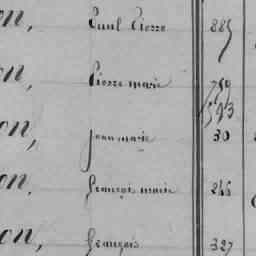 on, Paul Pierre 885
on, Pierre marie 750
593
on, jean marie 30
on, françois marie 246
on, françois 327